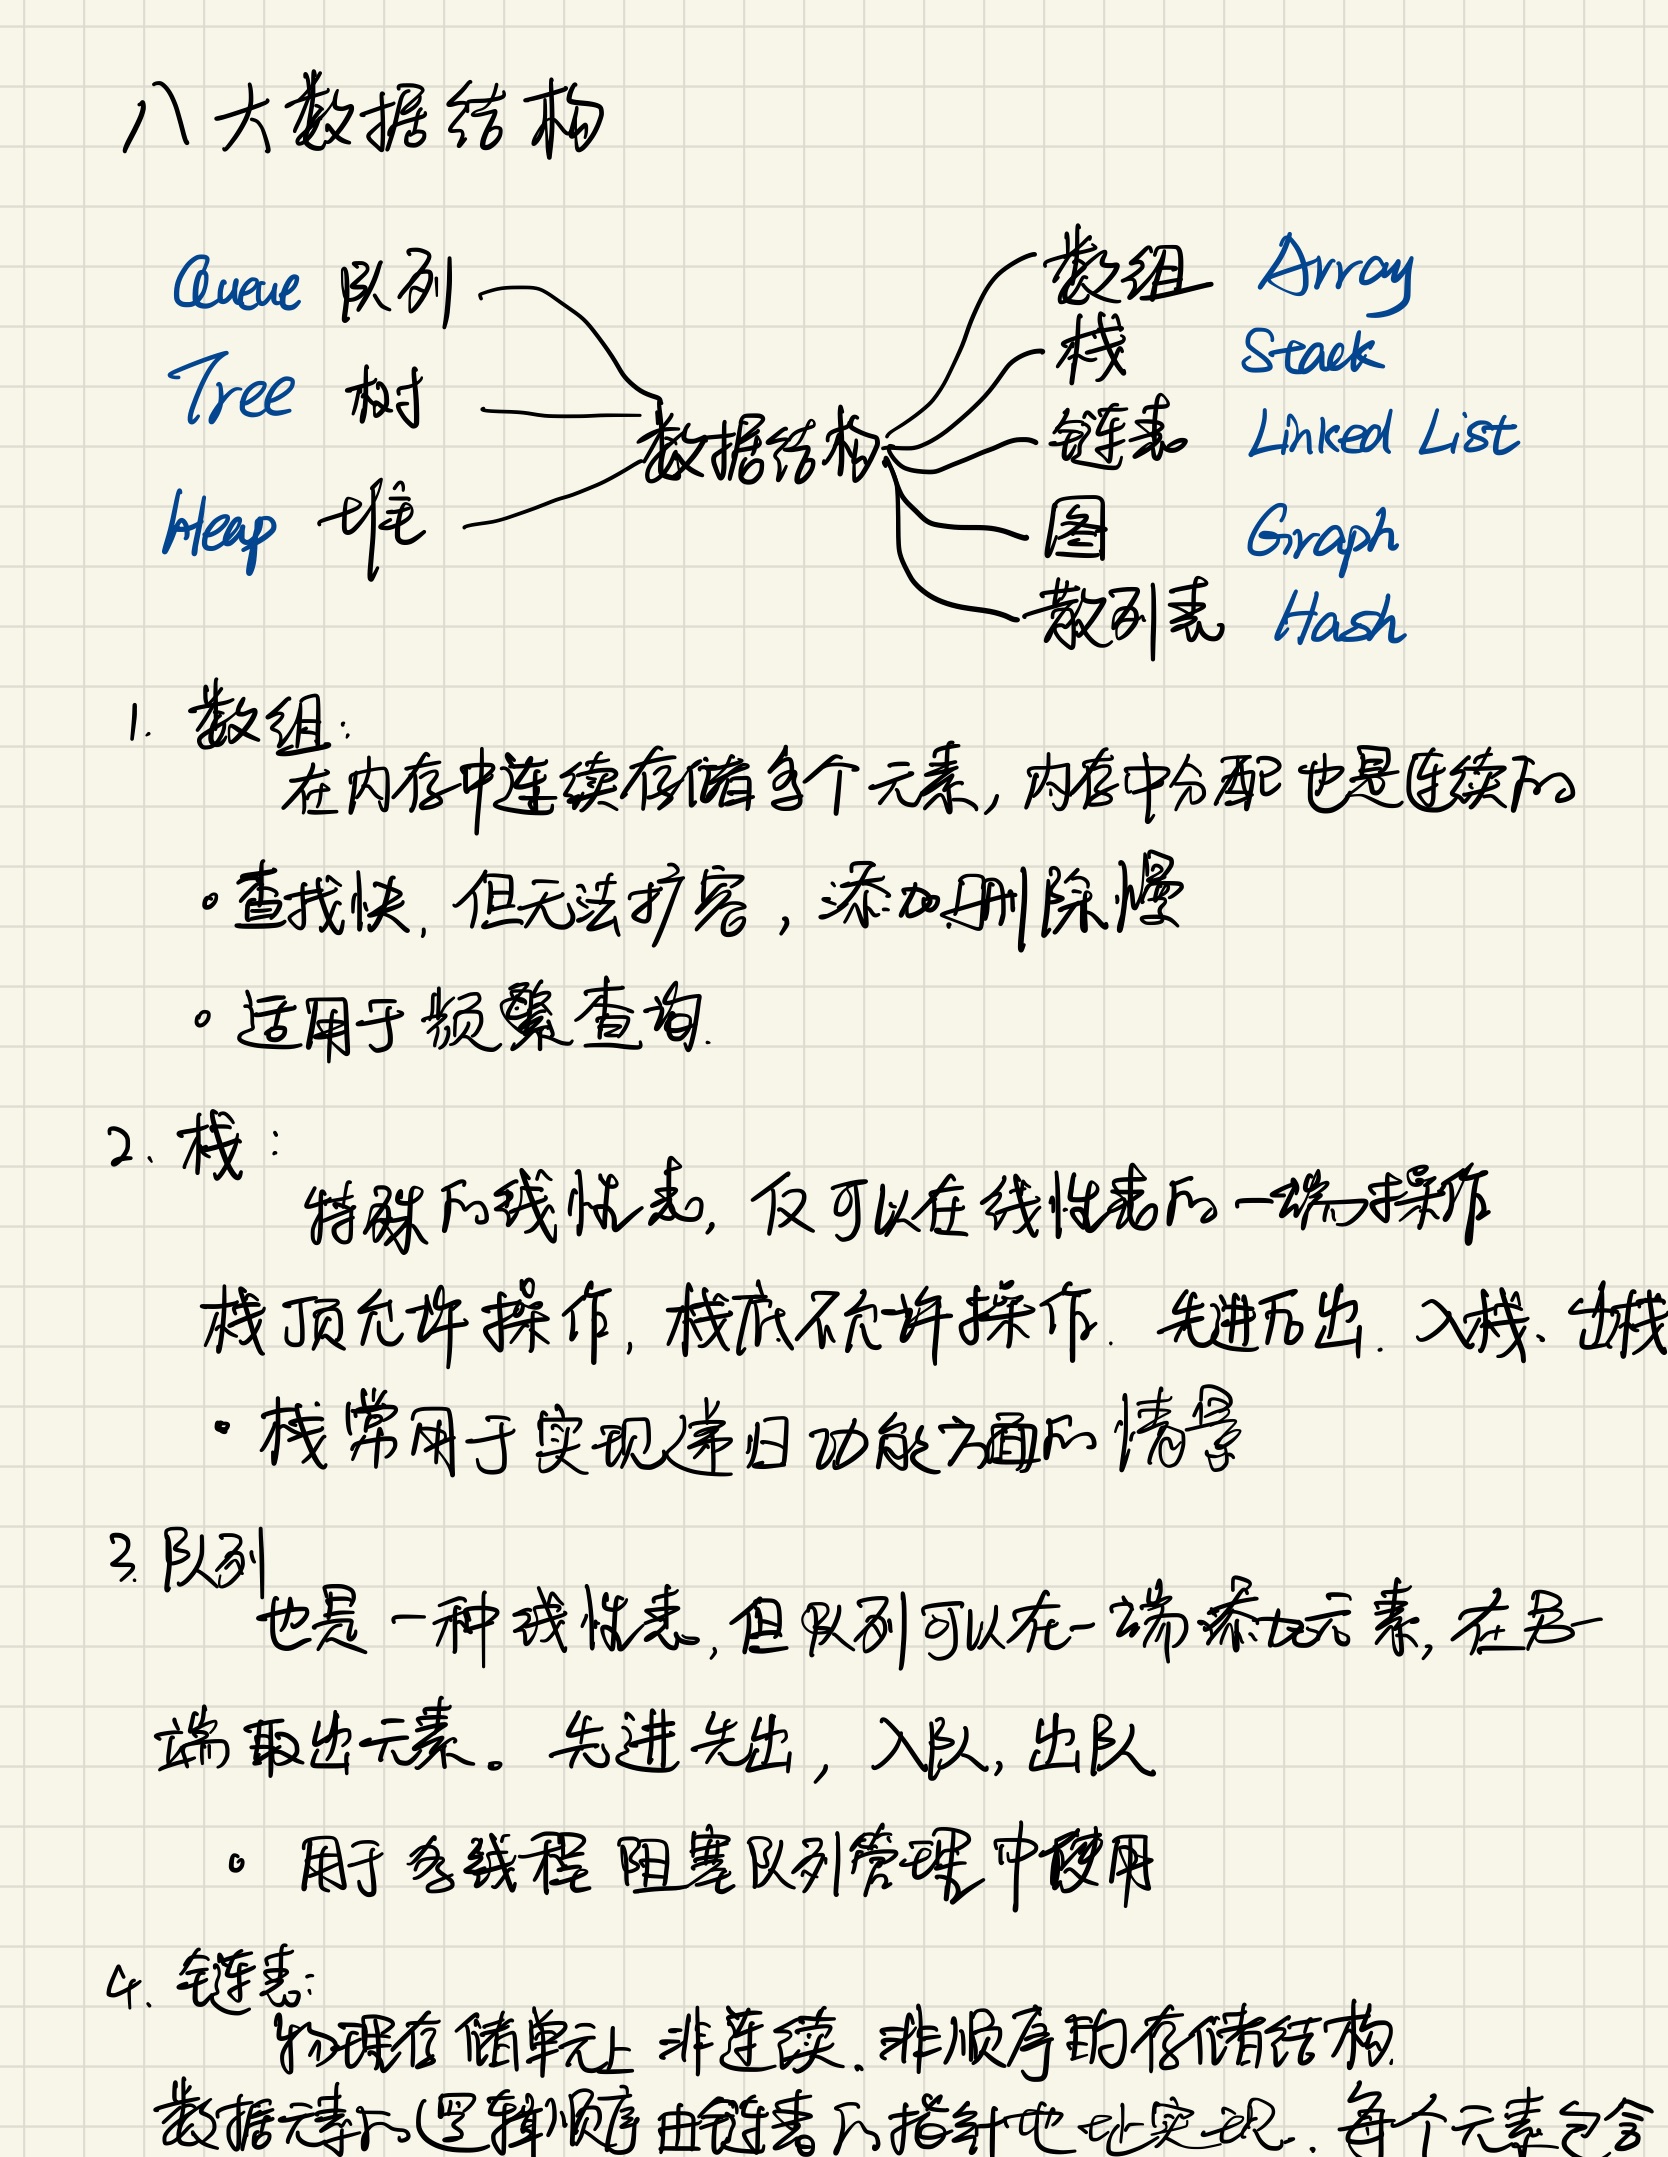 八大数据结构
Queue 队列
Tree 树
Heap 堆
数据结构
数组 Array
栈 Stack
链表 Linked List
图 Graph
散列表 Hash
1. 数组:
在内存中连续存储多个元素, 内存中分配也是连续的
·查找快, 但无法扩容, 添加删除慢
·适用于频繁查询.
2. 栈:
特殊的线性表, 仅可以在线性表的一端操作
栈顶允许操作, 栈底不允许操作. 先进后出. 入栈、出栈
·栈常用于实现递归功能方面的情景
3. 队列
也是一种线性表, 但队列可以在一端添加元素, 在另一
端取出元素。先进先出, 入队, 出队
·用于多线程阻塞队列管理中使用
4. 链表:
物理存储单元上非连续.非顺序的存储结构.
数据元素的逻辑顺序由链表的指针地址实现. 每个元素包含